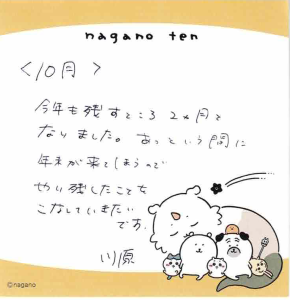 nagano ten
<10月>
今年も残すところ 2ヶ月と
なりました。あっという間に
年末が来てしまうので
やり残したことを
こなしていきたい
です。
川原
©nagano